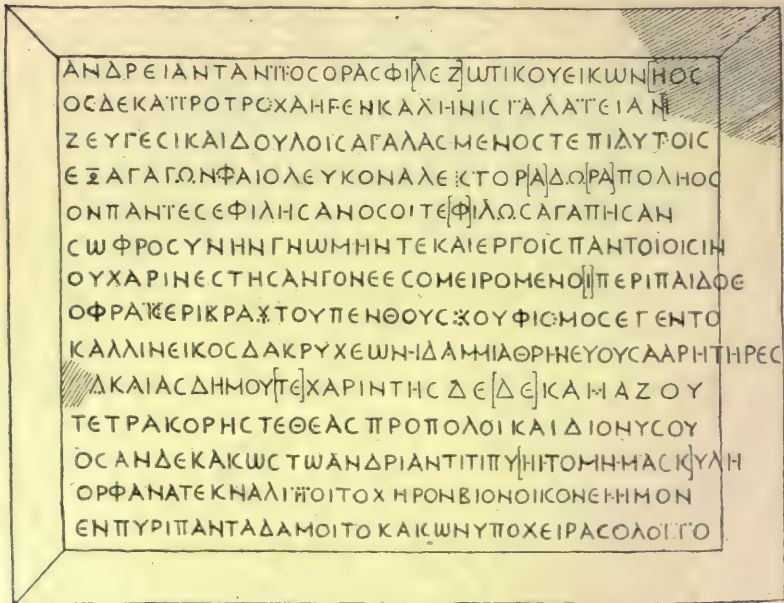 ΑΝΔΡΕΙΑΝΤΑΝΠΟϹΟΡΑϹΦΙ[ΛΕΖ]ωΤΙΚΟΥΕΙΚωΝ[Η]ΟϹ
ΟϹΔΕΚΑΠΡΟΤΡΟΧΑΗϜΕΝΚΑΛΗΝΙϹΓΑΛΑΤΕΙΑΝ
ΖΕΥΓΕϹΙΚΑΙΔΟΥΛΟΙϹΑΓΑΛΑϹΜΕΝΟϹΤΕΠΙΛΥΤΟΙϹ
ΕΞΑΓΑΓΩΝΦΑΙΟΛΕΥΚΟΝΑΛΕΚΤΟΡ[Α]ΔΩ[ΡΑ]ΠΟΛΗΟϹ
ΟΝΠΑΝΤΕϹΕΦΙΛΗϹΑΝΟϹΟΙΤΕ[Φ]ΙΛΩϹΑΓΑΠΗϹΑΝ
ϹωΦΡΟϹΥΝΗΝΓΝωΜΗΝΤΕΚΑΙΕΡΓΟΙϹΠΑΝΤΟΙΟΙϹΙΝ
ΟΥΧΑΡΙΝΕϹΤΗϹΑΝΓΟΝΕΕϹΟΜΕΙΡΟΜΕΝΟ[Ι]ΠΕΡΙΠΑΙΔΟϹ
ΟΦΡΑΚΕΡΙΚΡΑΧΤΟΥΠΕΝΘΟΥϹΚΟΥΦΙϹΜΟϹΕΓΕΝΤΟ
ΚΑΛΛΙΝΕΙΚΟϹΔΑΚΡΥΧΕωΝΙΔΑΜΜΙΑΘΡΗΝΕΥΟΥϹΑΑΡΗΤΗΡΕϹ
ΔΚΑΙΑϹΔΗΜΟΥ[ΤΕ]ΧΑΡΙΝΤΗϹΔΕ[ΔΕ]ΚΑΗΑΖΟΥ
ΤΕΤΡΑΚΟΡΗϹΤΕΘΕΑϹΠΡΟΠΟΛΟΙΚΑΙΔΙΟΝΥϹΟΥ
ΟϹΑΝΔΕΚΑΚωϹΤωΑΝΔΡΙΑΝΤΙΤΙΠΥ[ΗΙΤΟΜΗΗΑϹΚ]ΥΛΗ
ΟΡΦΑΝΑΤΕΚΝΑΛΙΠΟΙΤΟΧΗΡΟΝΒΙΟΝΟΙΚΟΝΕΗΗΜΟΝ
ΕΝΠΥΡΙΠΑΝΤΑΔΑΜΟΙΤΟΚΑΚωΝΥΠΟΧΕΙΡΑϹΟΛΟΙΤΟ